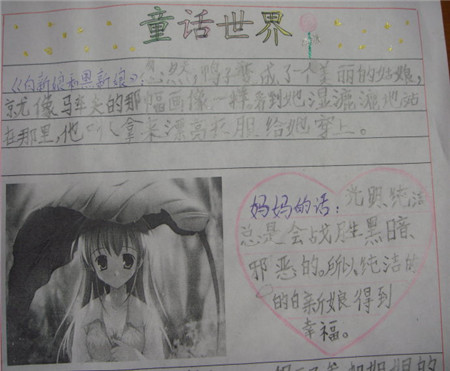 童话世界
《白新娘和黑新娘》:忽然,鸭子变成了个美丽的姑娘,
就像马车夫的那幅画像一样看到她湿漉漉地站
在那里,他叫人拿来漂亮衣服给她穿上。
妈妈的话:光明纯洁
总是会战胜黑暗
邪恶的。所以纯洁的
的白新娘得到
幸福。